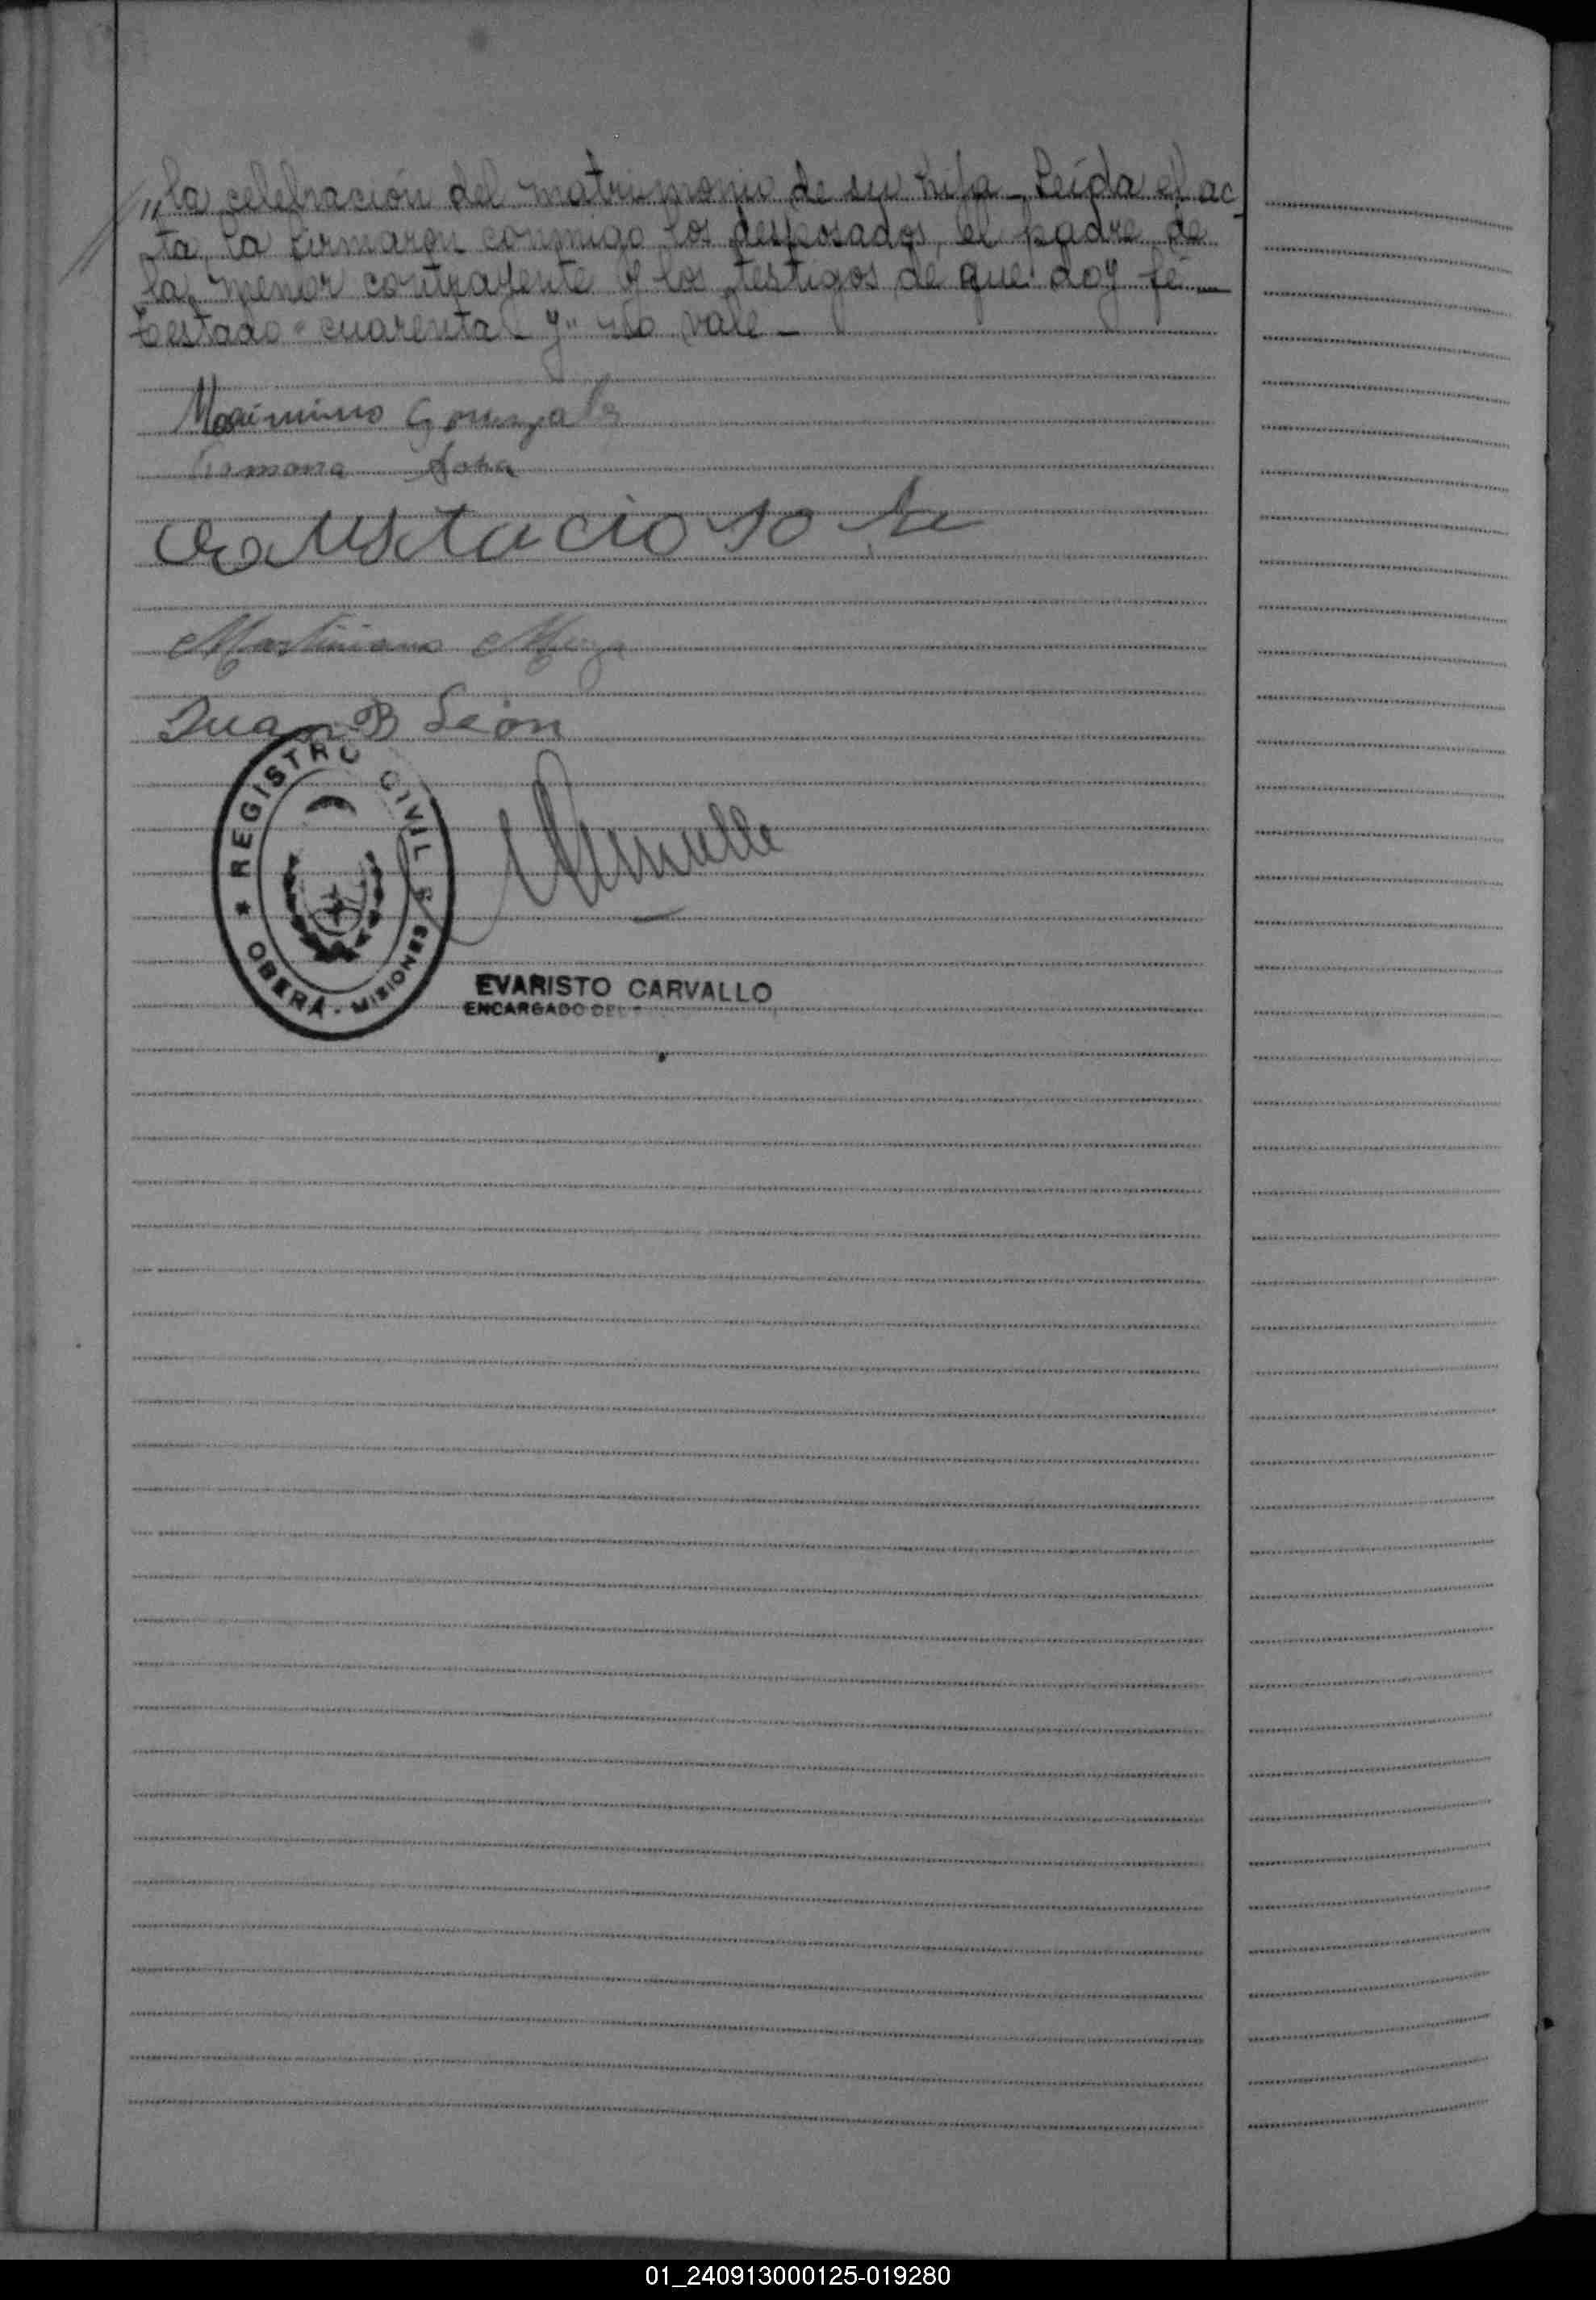 "la celebración del matrimonio de su hija_ Leída el ac-
ta, la firmaron conmigo los desposados, el padre de
la menor contrayente y los testigos de que doy fé_
Testado "cuarenta y" No vale_
Maximino Gonzalz
Ramona Sosa
Eustacio so sa
Martiniano
Juan B León
REGISTRO CIVIL
OBERÁ - MISIONES
EVARISTO CARVALLO
ENCARGADO DEL
01_240913000125-019280